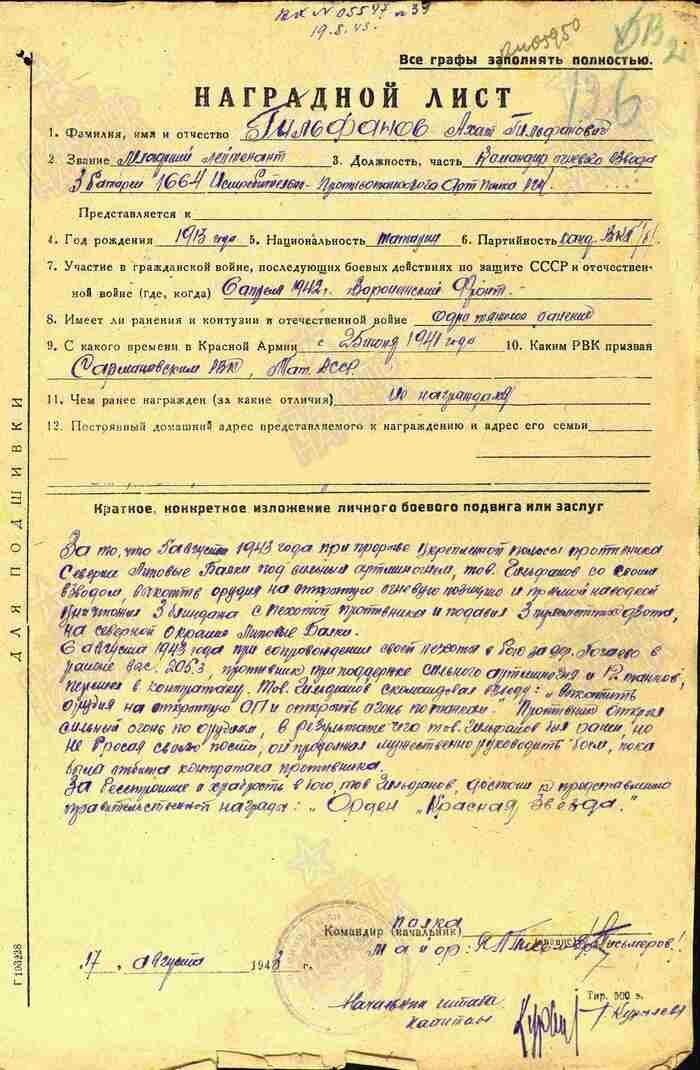 вх N 05547 39
19.8.43.
Все графы заполнять полностью.
НАГРАДНОЙ ЛИСТ
1. Фамилия, имя и отчество Гильфанов Ахат Гильфанович
2. Звание Младший лейтенант 3. Должность, часть Командир огневого взвода
3 батареи 1664 Истребительно-Противотанкового Арт Полка РГК
Представляется к
4. Год рождения 1913 года 5. Национальность татарин 6. Партийность канд. ВКП/б/
7. Участие в гражданской войне, последующих боевых действиях по защите СССР и отечествен-
ной войне (где, когда) 6 апреля 1942г. Воронежский Фронт.
8. Имеет ли ранения и контузии в отечественной войне одно тяжелое ранение
9. С какого времени в Красной Армии с 25 июня 1941 года 10. Каким РВК призван
Сармановским РВК, Тат. АССР.
11. Чем ранее награжден (за какие отличия) не награждался
12. Постоянный домашний адрес представляемого к награждению и адрес его семьи
ДЛЯ ПОДШИВКИ
Краткое, конкретное изложение личного боевого подвига или заслуг
За то, что 5 августа 1943 года при прорыве укрепленной полосы противника
Севернее Липовые Балки под сильным артминогнем, тов. Гильфанов со своим
взводом, выкатив орудия на открытую огневую позицию и прямой наводкой
уничтожил 3 блиндажа с пехотой противника и подавил 3 пулеметных дзота,
на северной окраине Липовые Балки.
6 августа 1943 года при сопровождении своей пехоты в бою за дер. Гочаево в
районе выс. 206.3, противник при поддержке сильного артминогня и 12 танков,
перешел в контратаку. Тов. Гильфанов скомандовал взводу: "Выкатить
орудия на открытую ОП и открыть огонь по танкам." Противник открыл
сильный огонь по орудиям, в результате чего тов. Гильфанов был ранен, но
не бросая своего поста, он продолжал мужественно руководить боем, пока
была отбита контратака противника.
За бесстрашие и храбрость в бою, тов. Гильфанов, достоин к представлению
правительственной награды: "Орден "Красная Звезда."
Командир (начальник) полка
майор: Письмеров
17 августа 1943 г.
Начальник штаба
капитан
Тир. 500 э.
Г 106238